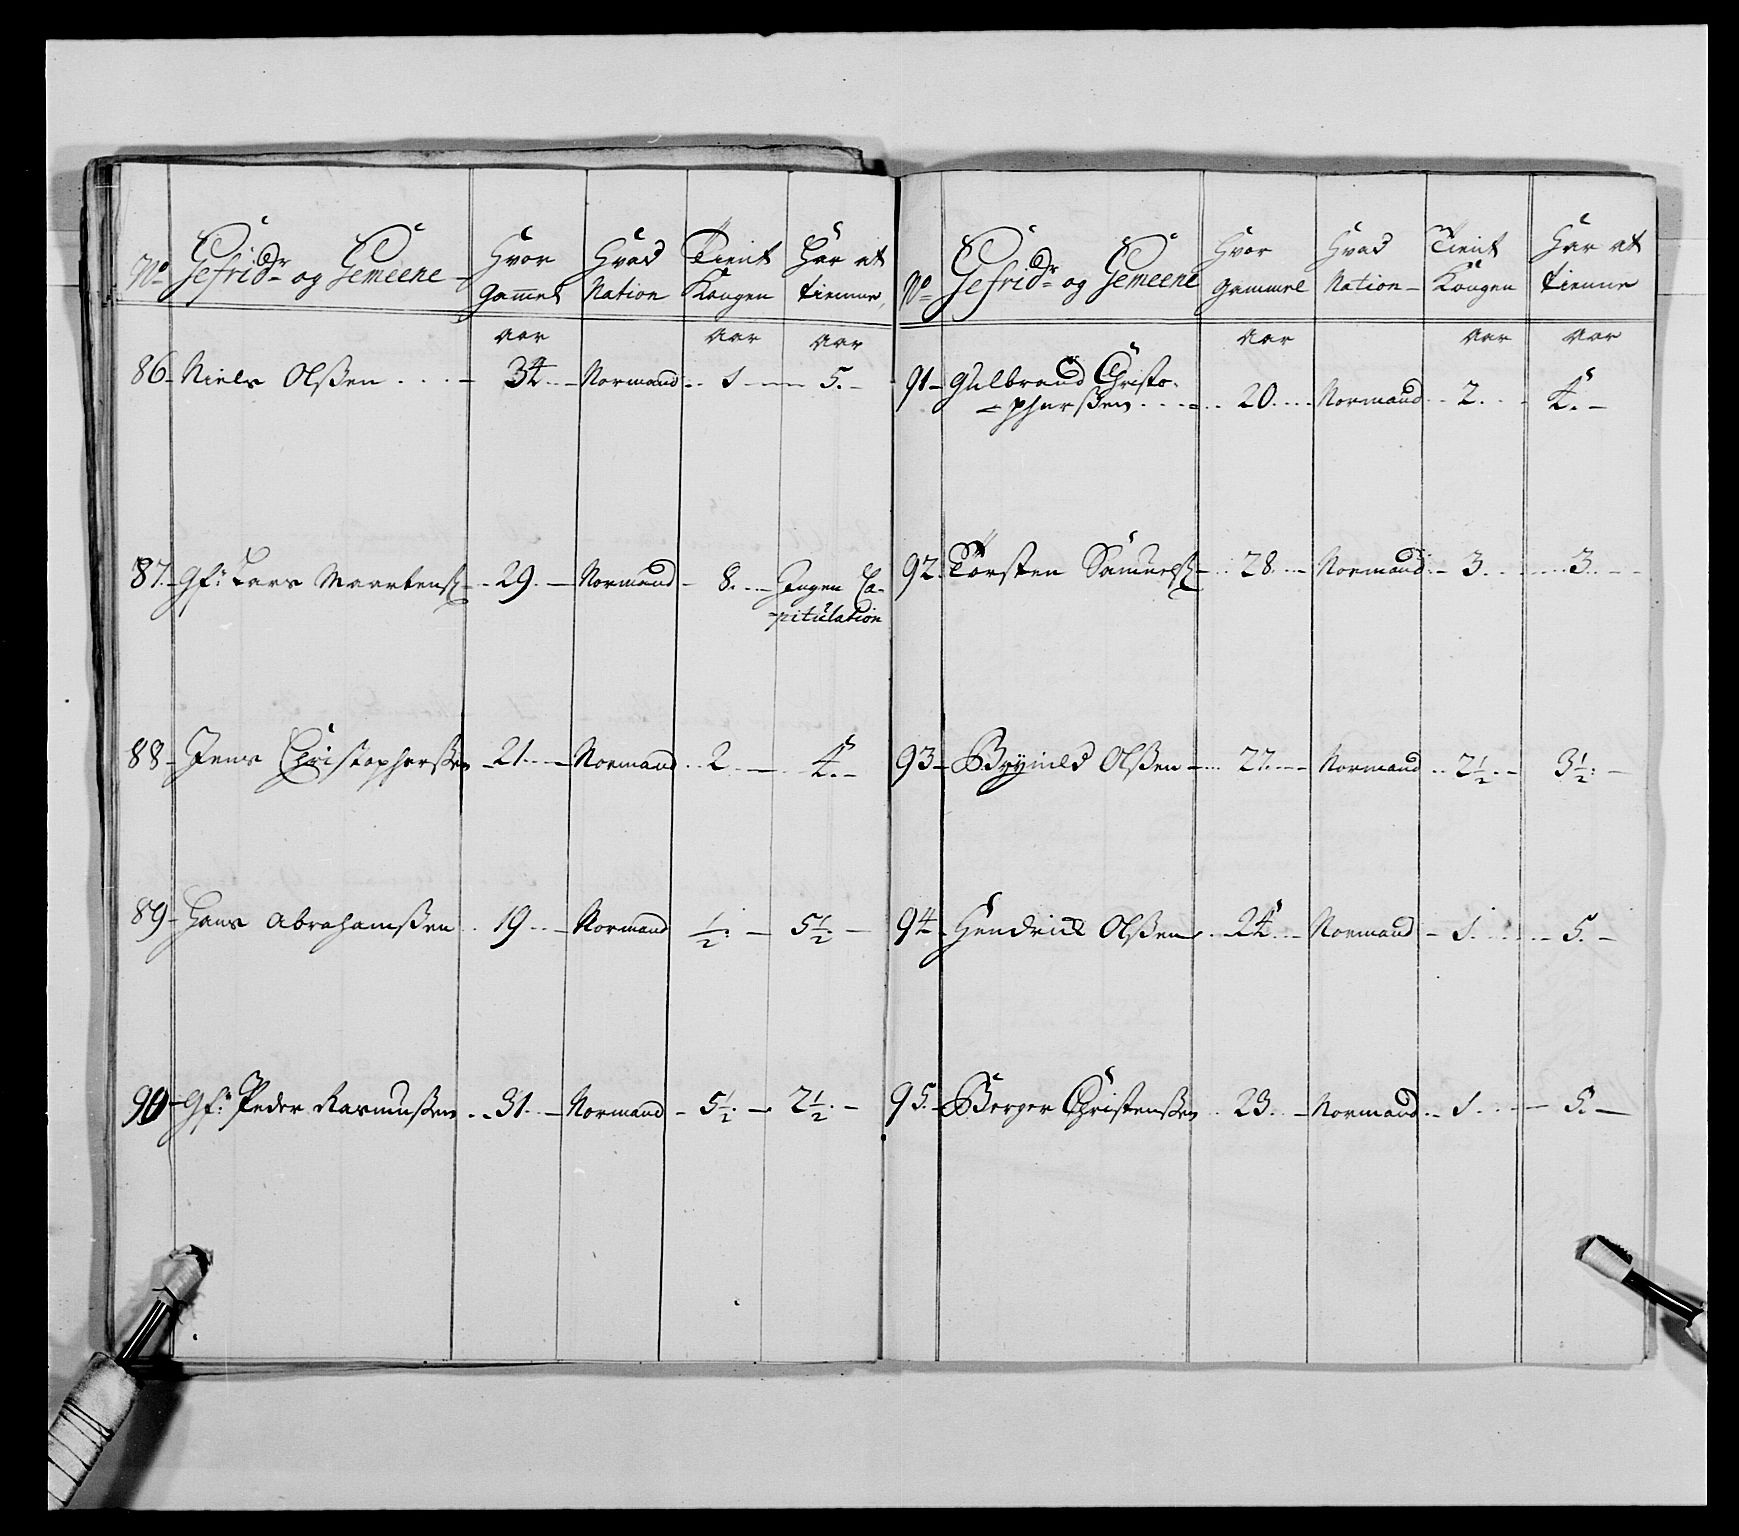 No Gefridr og Gemeene Hvor gammel Hvad Nation Tient Kongen Har at tienne
aar aar aar
86 Niels Olßen 34 Normand 1 5
87 Gf: Lars Maartenß 29 Normand 8 Ingen Ca-
pitulation
88 Jens Christopherßen 21 Normand 2 4
89 Hans Abrahamßen 19 Normand 1/2 5 1/2
90 Gf: Peder Rasmußen 31 Normand 5 1/2 2 1/2
No Gefridr og Gemeene Hvor gammel Hvad Nation Tient Kongen Har at tienne
aar aar aar
91 Gulbrand Christo-
pherßen 20 Normand 2 4
92 Torsten Samuelß 28 Normand 3 3
93 Brynild Olßen 27 Normand 2 1/2 3 1/2
94 Hendrick Olßen 24 Normand 1 5
95 Berger Christenßen 23 Normand 1 5